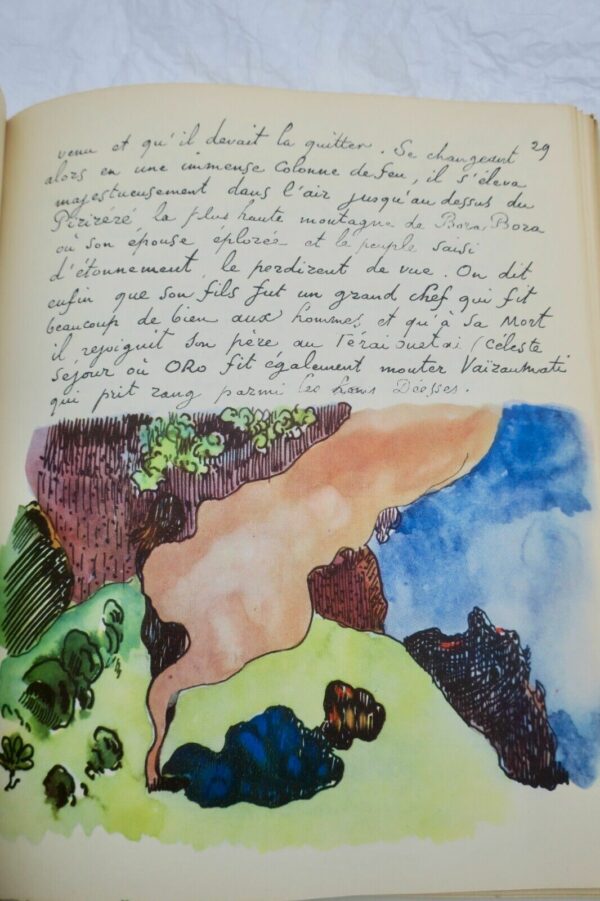 29
venu et qu'il devait la quitter. Se changeant
alors en une immense Colonne de feu, il s'éleva
majestueusement dans l'air jusqu'au dessus du
Pirizéré la plus haute montagne de Bora Bora
où son épouse éplorée et le peuple saisi
d'étonnement, le perdirent de vue. On dit
enfin que son fils fut un grand chef qui fit
beaucoup de bien aux hommes, et qu'à sa Mort
il rejoignit son père au (Céleste
Séjour où ORo fit également monter Vaïraumati
qui prit rang parmi les Déesses.